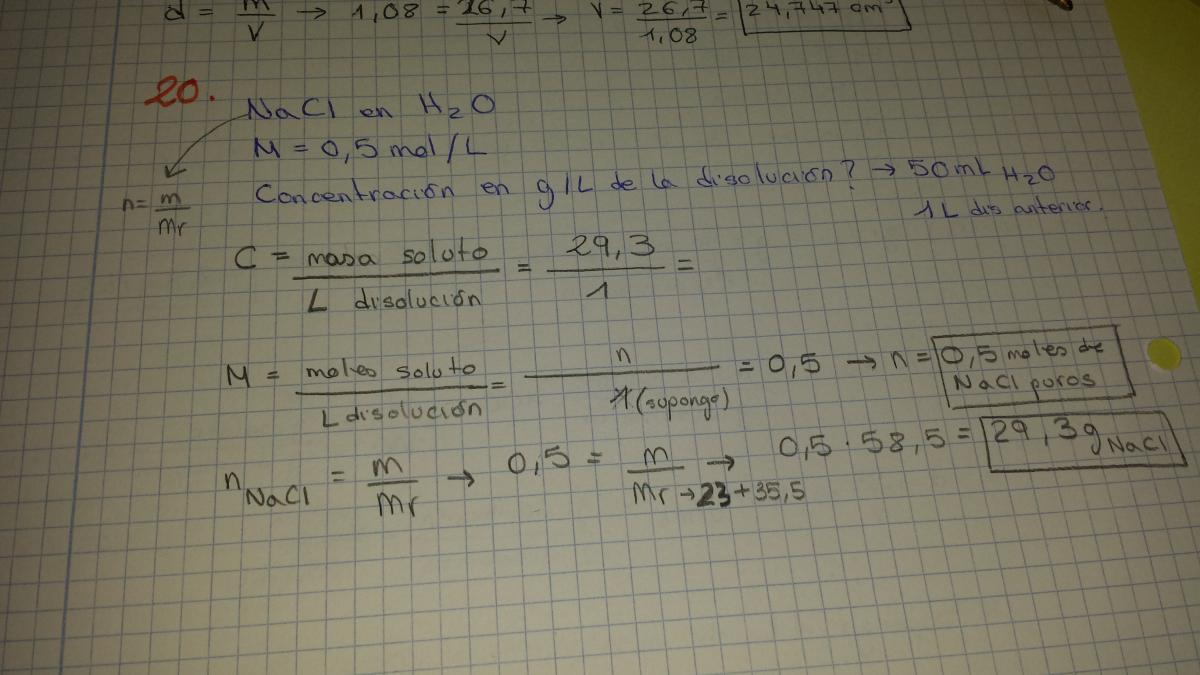 d = m/V → 1,08 = 26,7/V → V = 26,7/1,08 = 24,747 cm³
20.
NaCl en H₂O
M = 0,5 mol/L
Concentración en g/L de la disolución? → 50 mL H₂O
1L dis anterior.
n = m/Mr
C = masa soluto/L disolución = 29,3/1 =
M = moles soluto/L disolución = n/1 (supongo) = 0,5 → n = 0,5 moles de
NaCl puros
n NaCl = m/Mr → 0,5 = m/Mr → 0,5 · 58,5 = 29,3g NaCl
→ 23 + 35,5